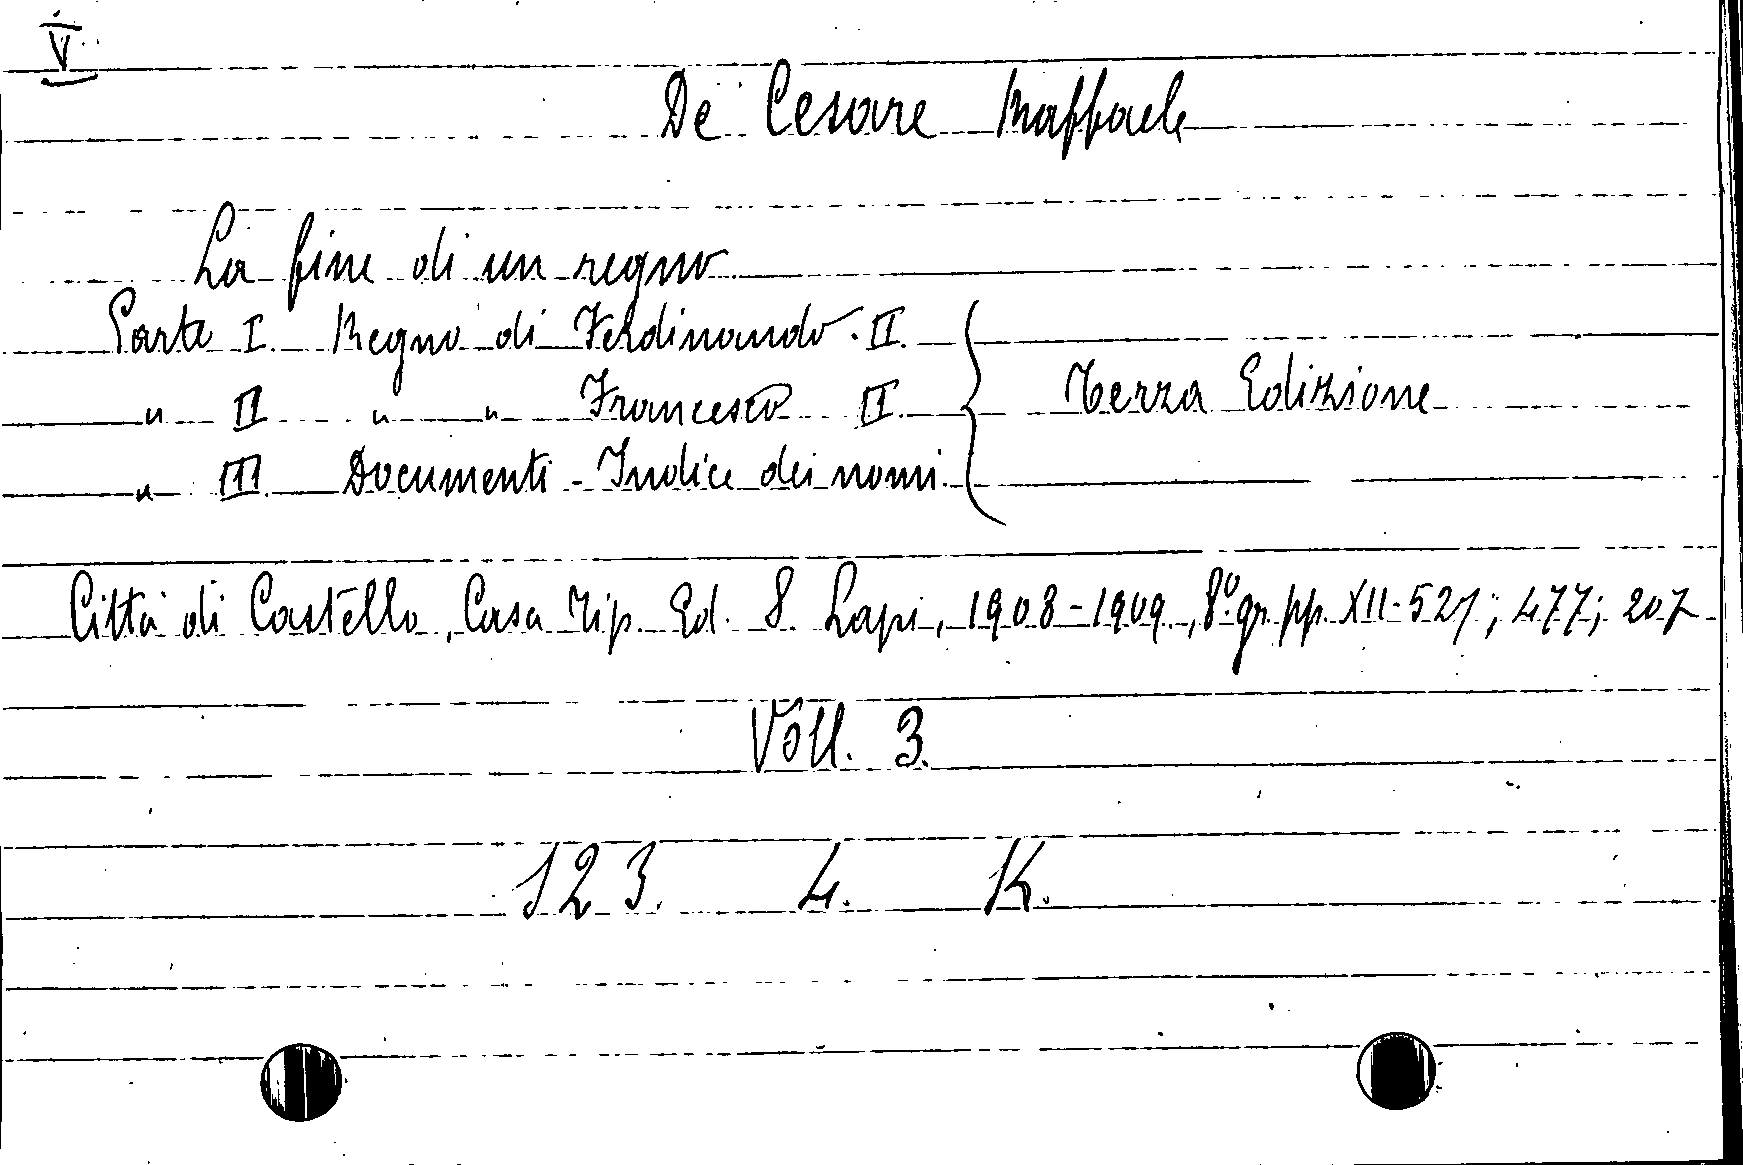 V
De Cesare Raffaele
La fine di un regno
Parte I Regno di Ferdinando II.
" II " " Francesco II. Terza Edizione
" III Documenti - Indice dei nomi
Città di Castello, Casa Tip. Ed. S. Lapi, 1908-1909, 8º gr. pp. XII-527; 477; 207
Voll. 3.
123. 4. K.